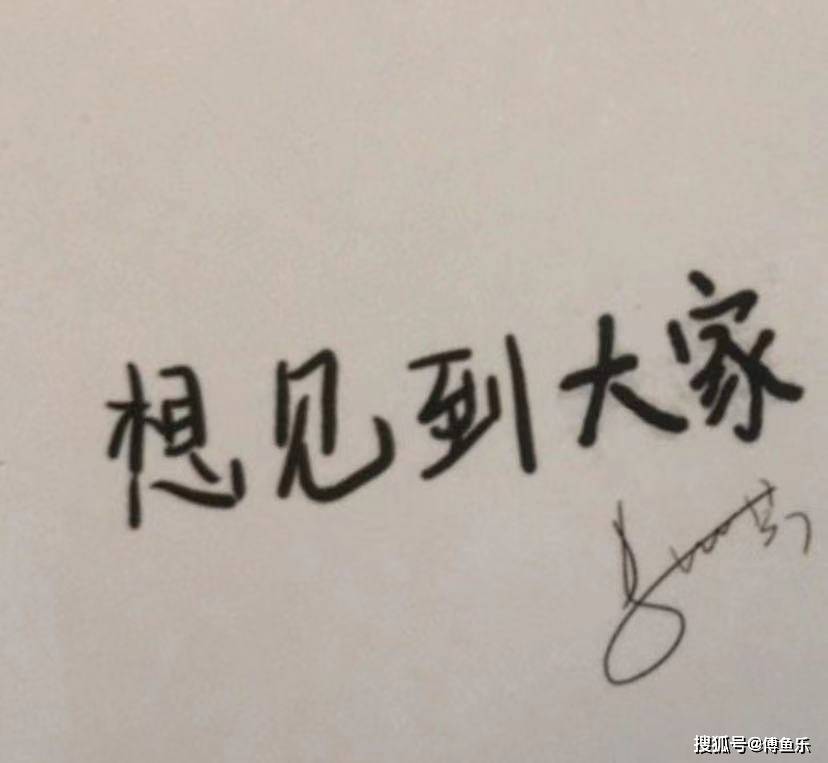 想见到大家
搜狐号@傅鱼乐